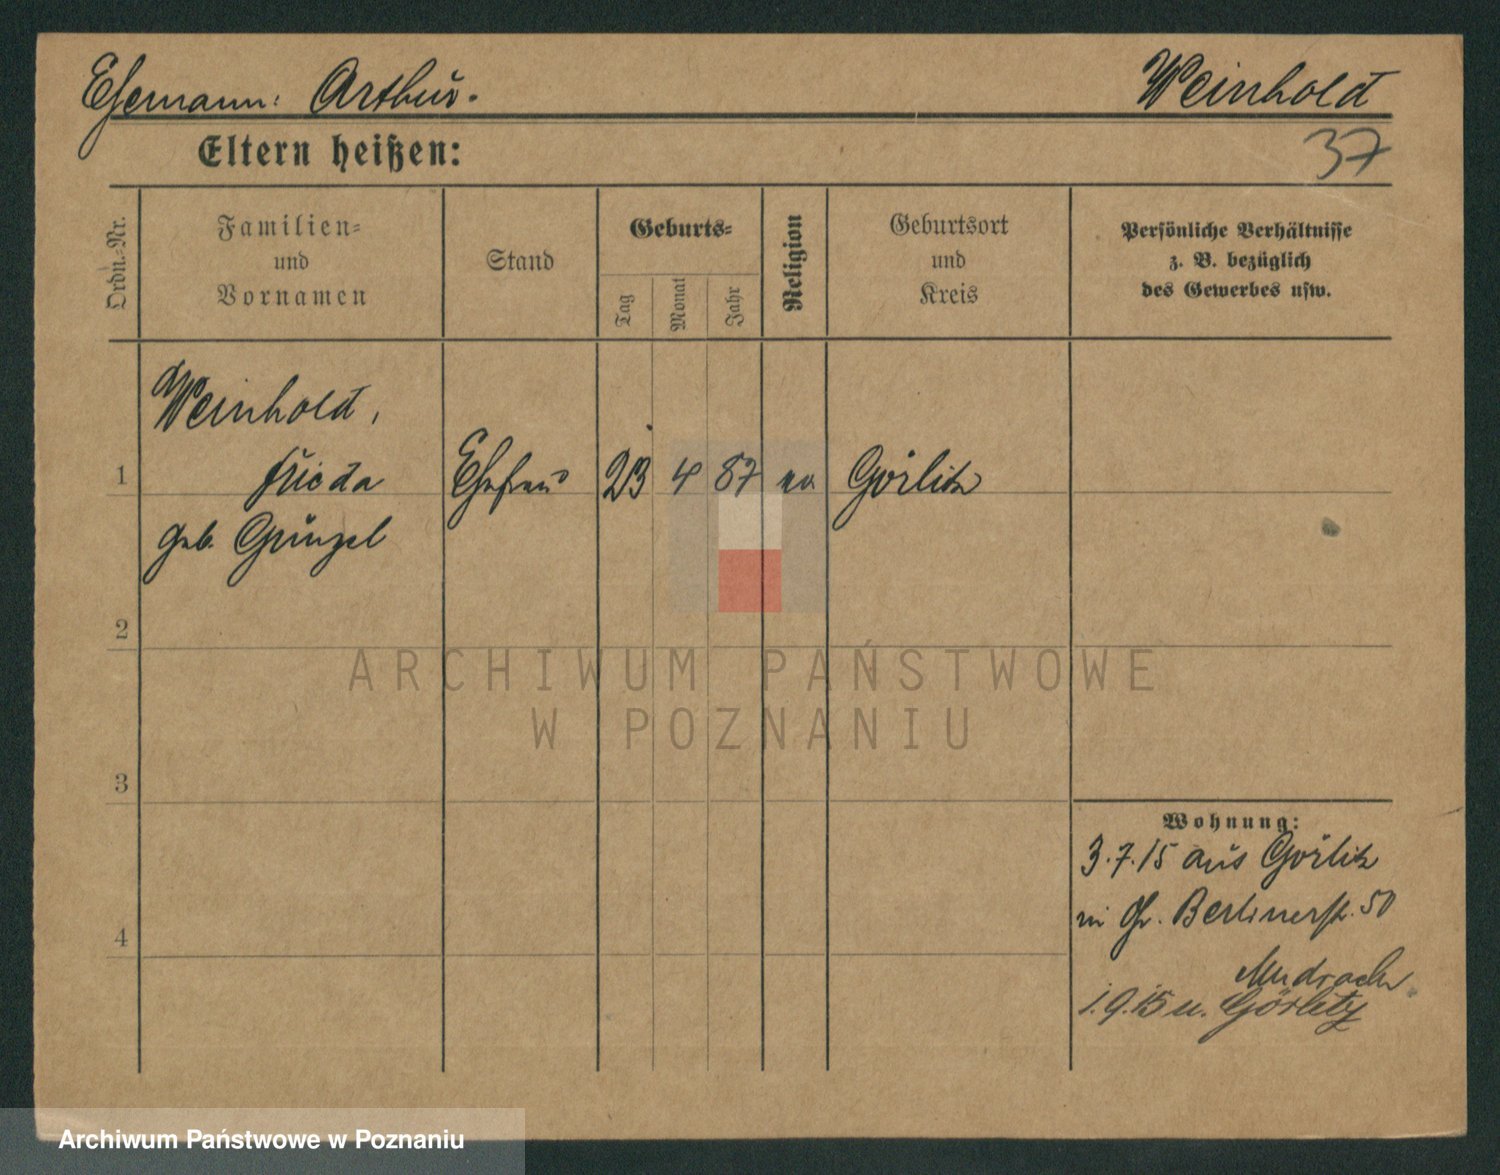 Ehemann: Arthur.
Weinhold
Eltern heißen:
37
Ordn.-Nr.
Familien-
und
Vornamen
Stand
Geburts-
Tag
Monat
Jahr
Religion
Geburtsort
und
Kreis
Persönliche Verhältnisse
z. B. bezüglich
des Gewerbes usw.
Weinhold,
1 Frieda Ehefrau 23 4 87 ev Görlitz
geb. Günzel
2
ARCHIWUM PAŃSTWOWE
W POZNANIU
3
4
Wohnung:
3.7.15 aus Görlitz
in Gr. Berlinerstr. 50
Mudrack
1.9.15 n. Görlitz
Archiwum Państwowe w Poznaniu